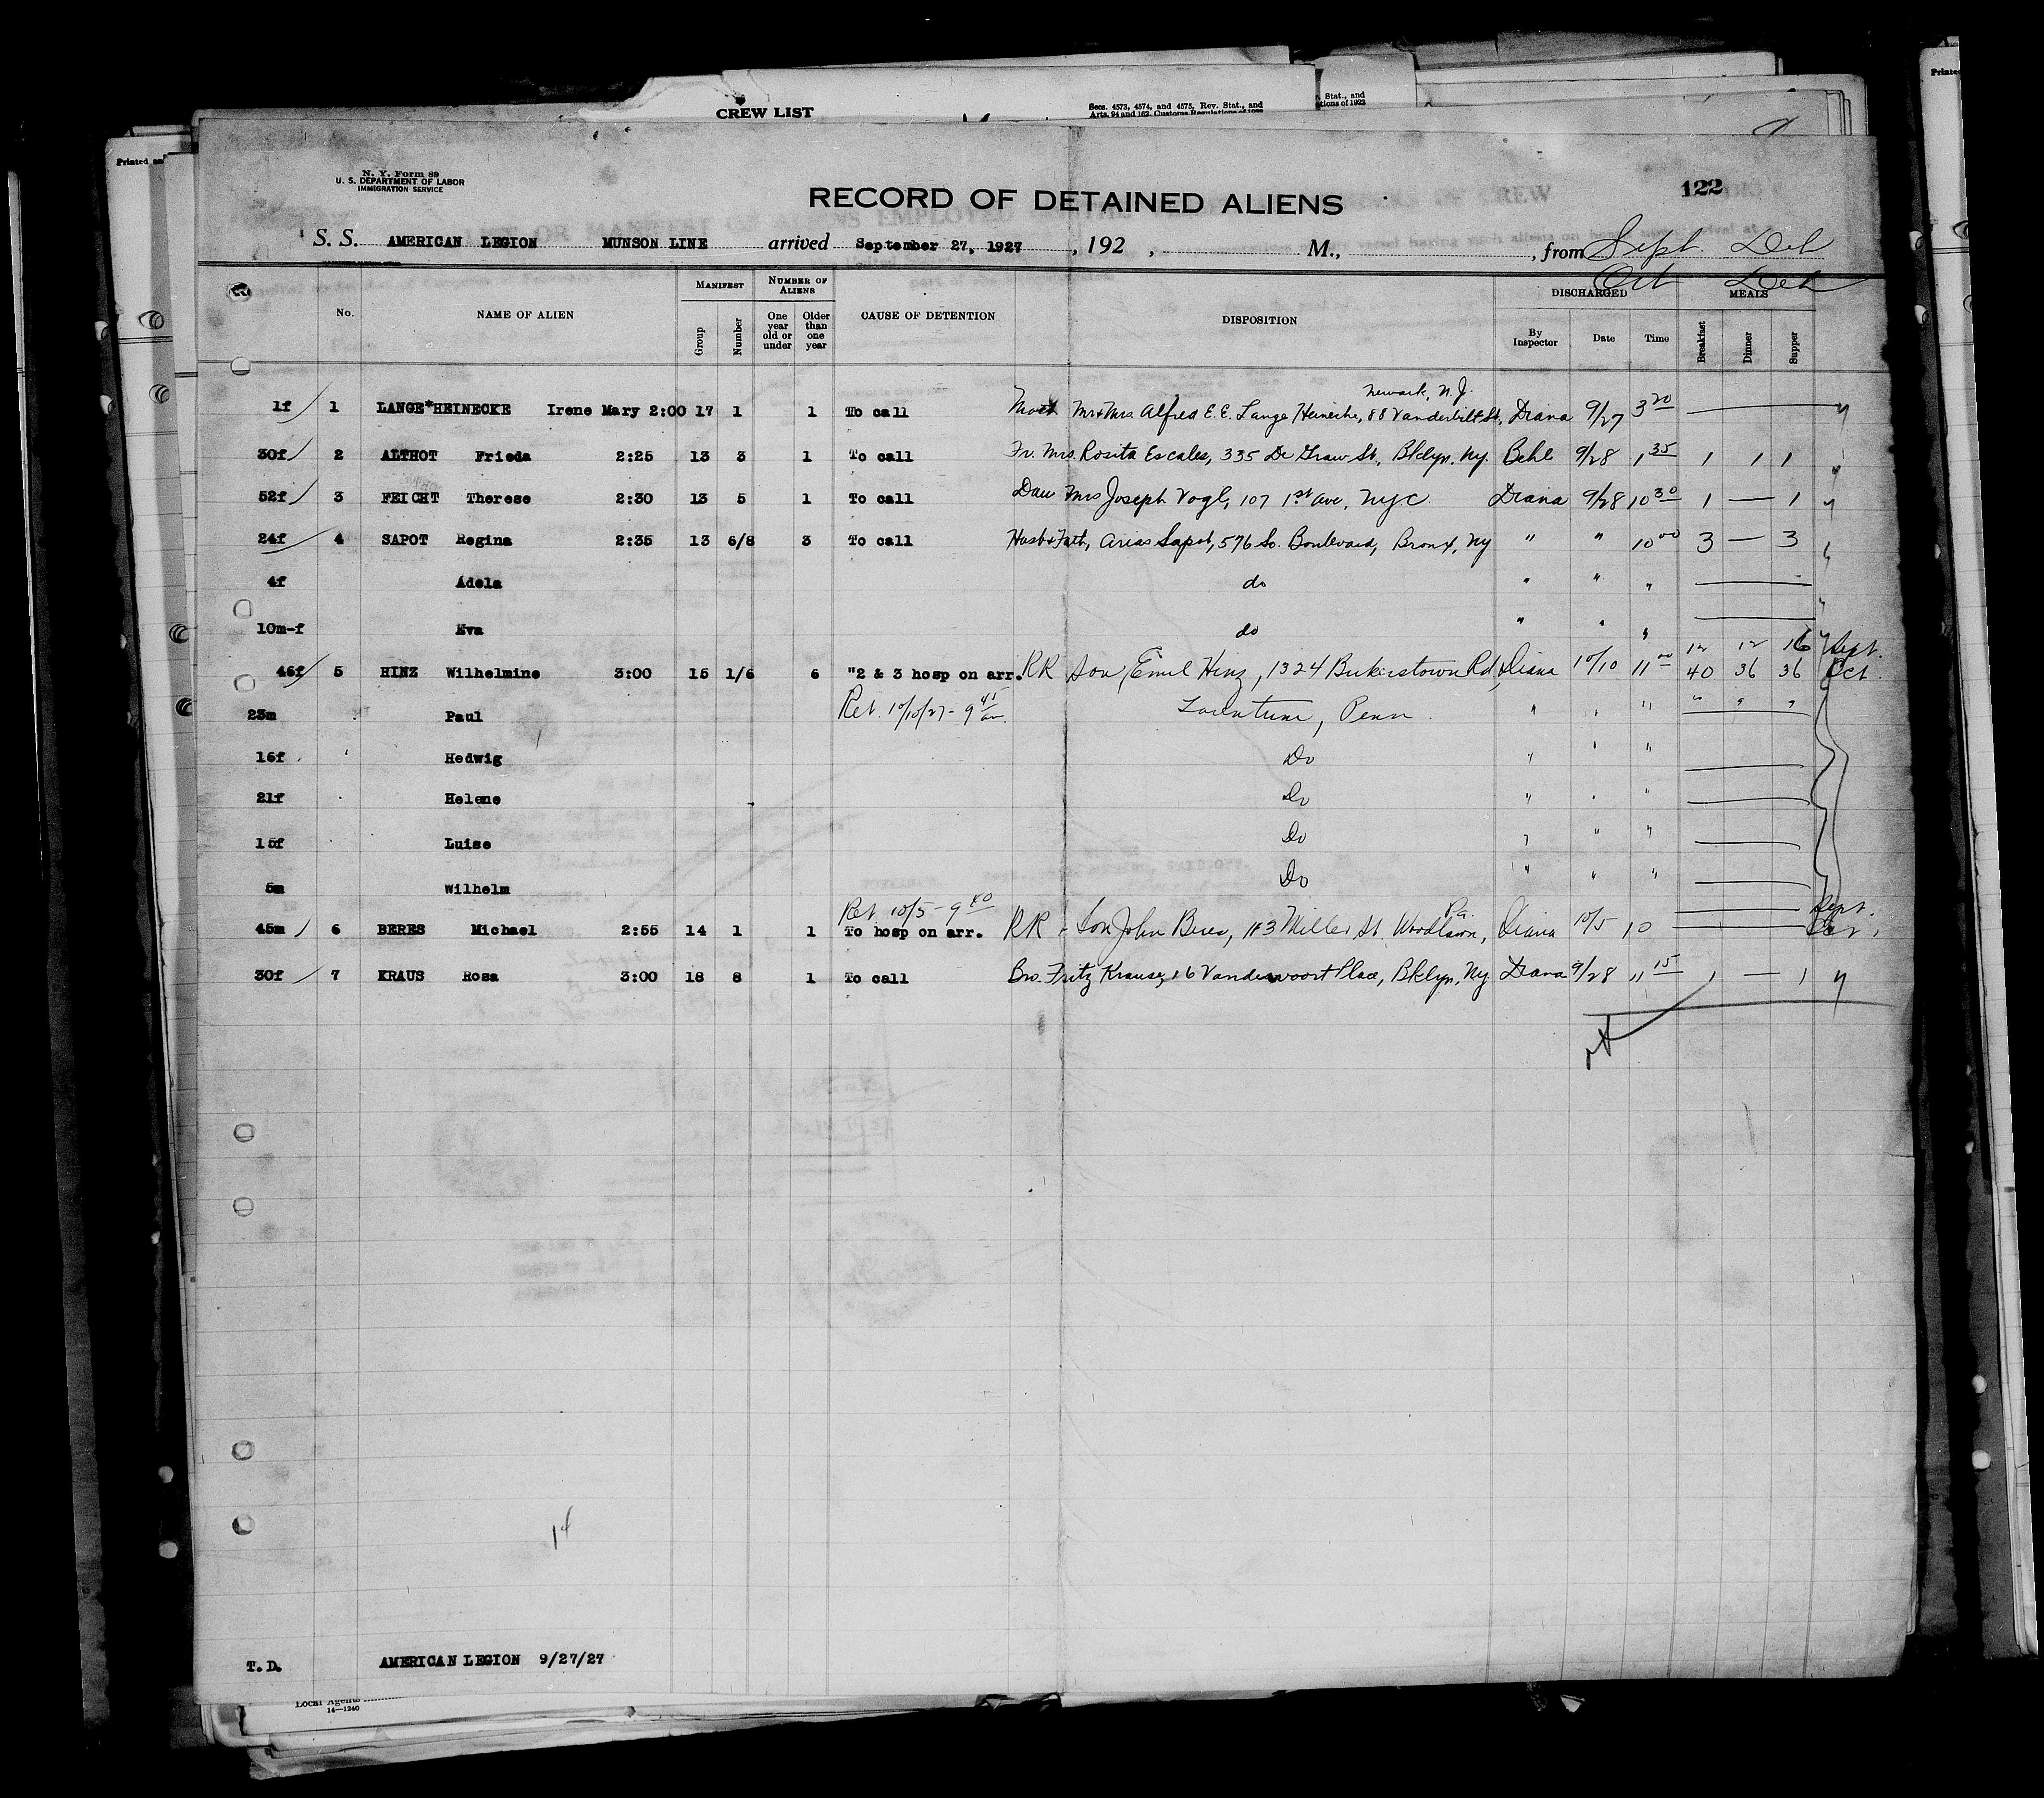 CREW LIST
Secs. 4573, 4574, and 4575, Rev. Stat., and
Arts. 94 and 162, Customs Regulations of 1923
Stat., and
tions of 1923
Printed
N. Y. Form 89
U. S. DEPARTMENT OF LABOR
IMMIGRATION SERVICE
RECORD OF DETAINED ALIENS
122
S. S. AMERICAN LEGION MUNSON LINE arrived September 27, 1927, 192 , M., , from Sept. Det
Oct Det
No. NAME OF ALIEN MANIFEST Group Number NUMBER OF ALIENS One year old or under Older than one year CAUSE OF DETENTION DISPOSITION DISCHARGED By Inspector Date Time MEALS Breakfast Dinner Supper
Newark, N.J.
1f 1 LANGE*HEINECKE Irene Mary 2:00 17 1 1 To call Mr & Mrs Alfred E. E. Lange Heinecke, 88 Vanderbilt St, Diana 9/27 3 20
30f 2 ALTHOT Frieda 2:25 13 3 1 To call Fr. Mrs. Rosita Escales, 335 De Graw St., Bklyn. Ny. Behl 9/28 1 35 1 1 1 "
52f 3 FEICHT Therese 2:30 13 5 1 To call Dau Mrs Joseph Vogl, 107 1st Ave, NYC. Diana 9/28 10 30 1 — 1 "
24f 4 SAPOT Regina 2:35 13 6/8 3 To call Husb & Fath, Arias Sapot, 576 So. Boulevard, Bronx, Ny " " 10 00 3 — 3
4f Adela do " " "
10m-f Eva do " " "
12 12 16 Sept.
46f 5 HINZ Wilhelmine 3:00 15 1/6 6 "2 & 3 hosp on arr. RR Son Emil Hinz, 1324 Rd, Diana 10/10 11 00 40 36 36 Oct.
23m Paul Ret. 10/10/27 - 9 45 am. , Penn. " " " " " "
16f Hedwig Do " " "
21f Helene Do " " "
15f Luise Do " " "
5m Wilhelm Do " " "
Ret. 10/5 - 9 40 Pa. Sept.
45m 6 BERES Michael 2:55 14 1 1 To hosp on arr. RR Son John Beres, 113 Miller St. Woodlawn, Diana 10/5 10 Oct.
30f 7 KRAUS Rosa 3:00 18 8 1 To call Bro. Fritz Krause, 16 Vandervoort Place, Bklyn, Ny Diana 9/28 11 15 1 — 1 "
14
T. D. AMERICAN LEGION 9/27/27
Local Agents
14—1240